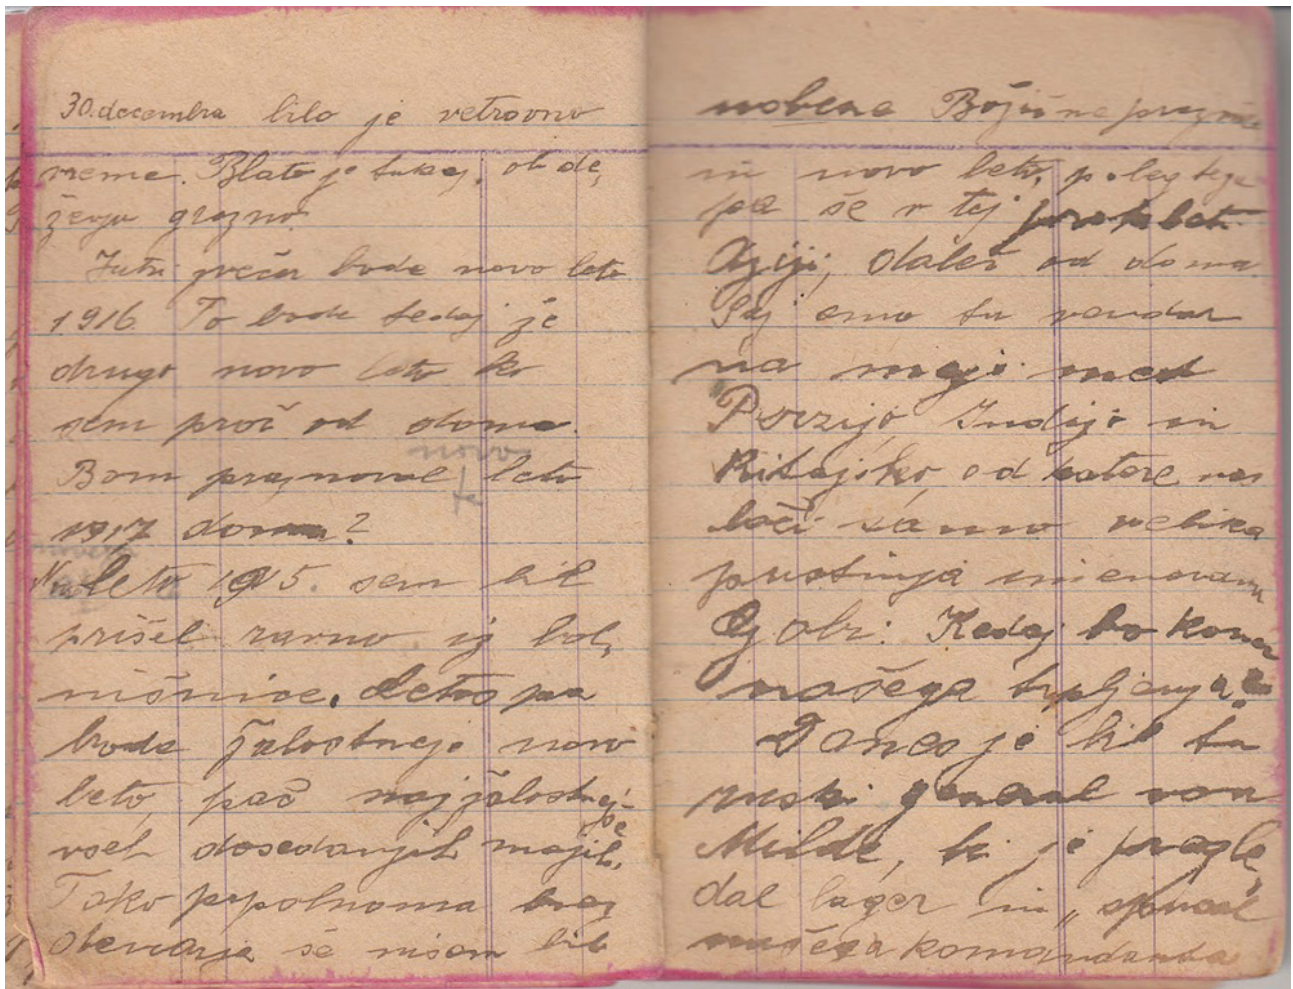 30. decembra bilo je vetrovno
vreme. Blato je tukaj, ob de,
ževju grozno.
Jutri zvečer bode novo leto
1916. To bode sedaj že
drugo novo leto ko
sem proč od doma.
novo
Bom praznoval leto
1917 doma?
leto 1915. sem bil
prišel ravno iz bol,
nišnice. Letos pa
bode žalostneje novo
leto, pač najžalostnej-
še
vseh dosedanjih mojih.
Tako popolnoma brez
denarja še nisem bil
nobene Božične praznike
in novo leto, poleg tega
pa še v tej prokleti
Aziji, daleč od doma.
Saj smo tu vendar
na meji med
Perzijo, Indijo in
Kitajsko, od katere nas
loči samo velika
pustinja imenovana
Gobi. Kedaj bo konec
našega trpljenja?
Danes je bil tu
ruski general von
Milde, ki je pregle,
dal lager in
našega komandanta